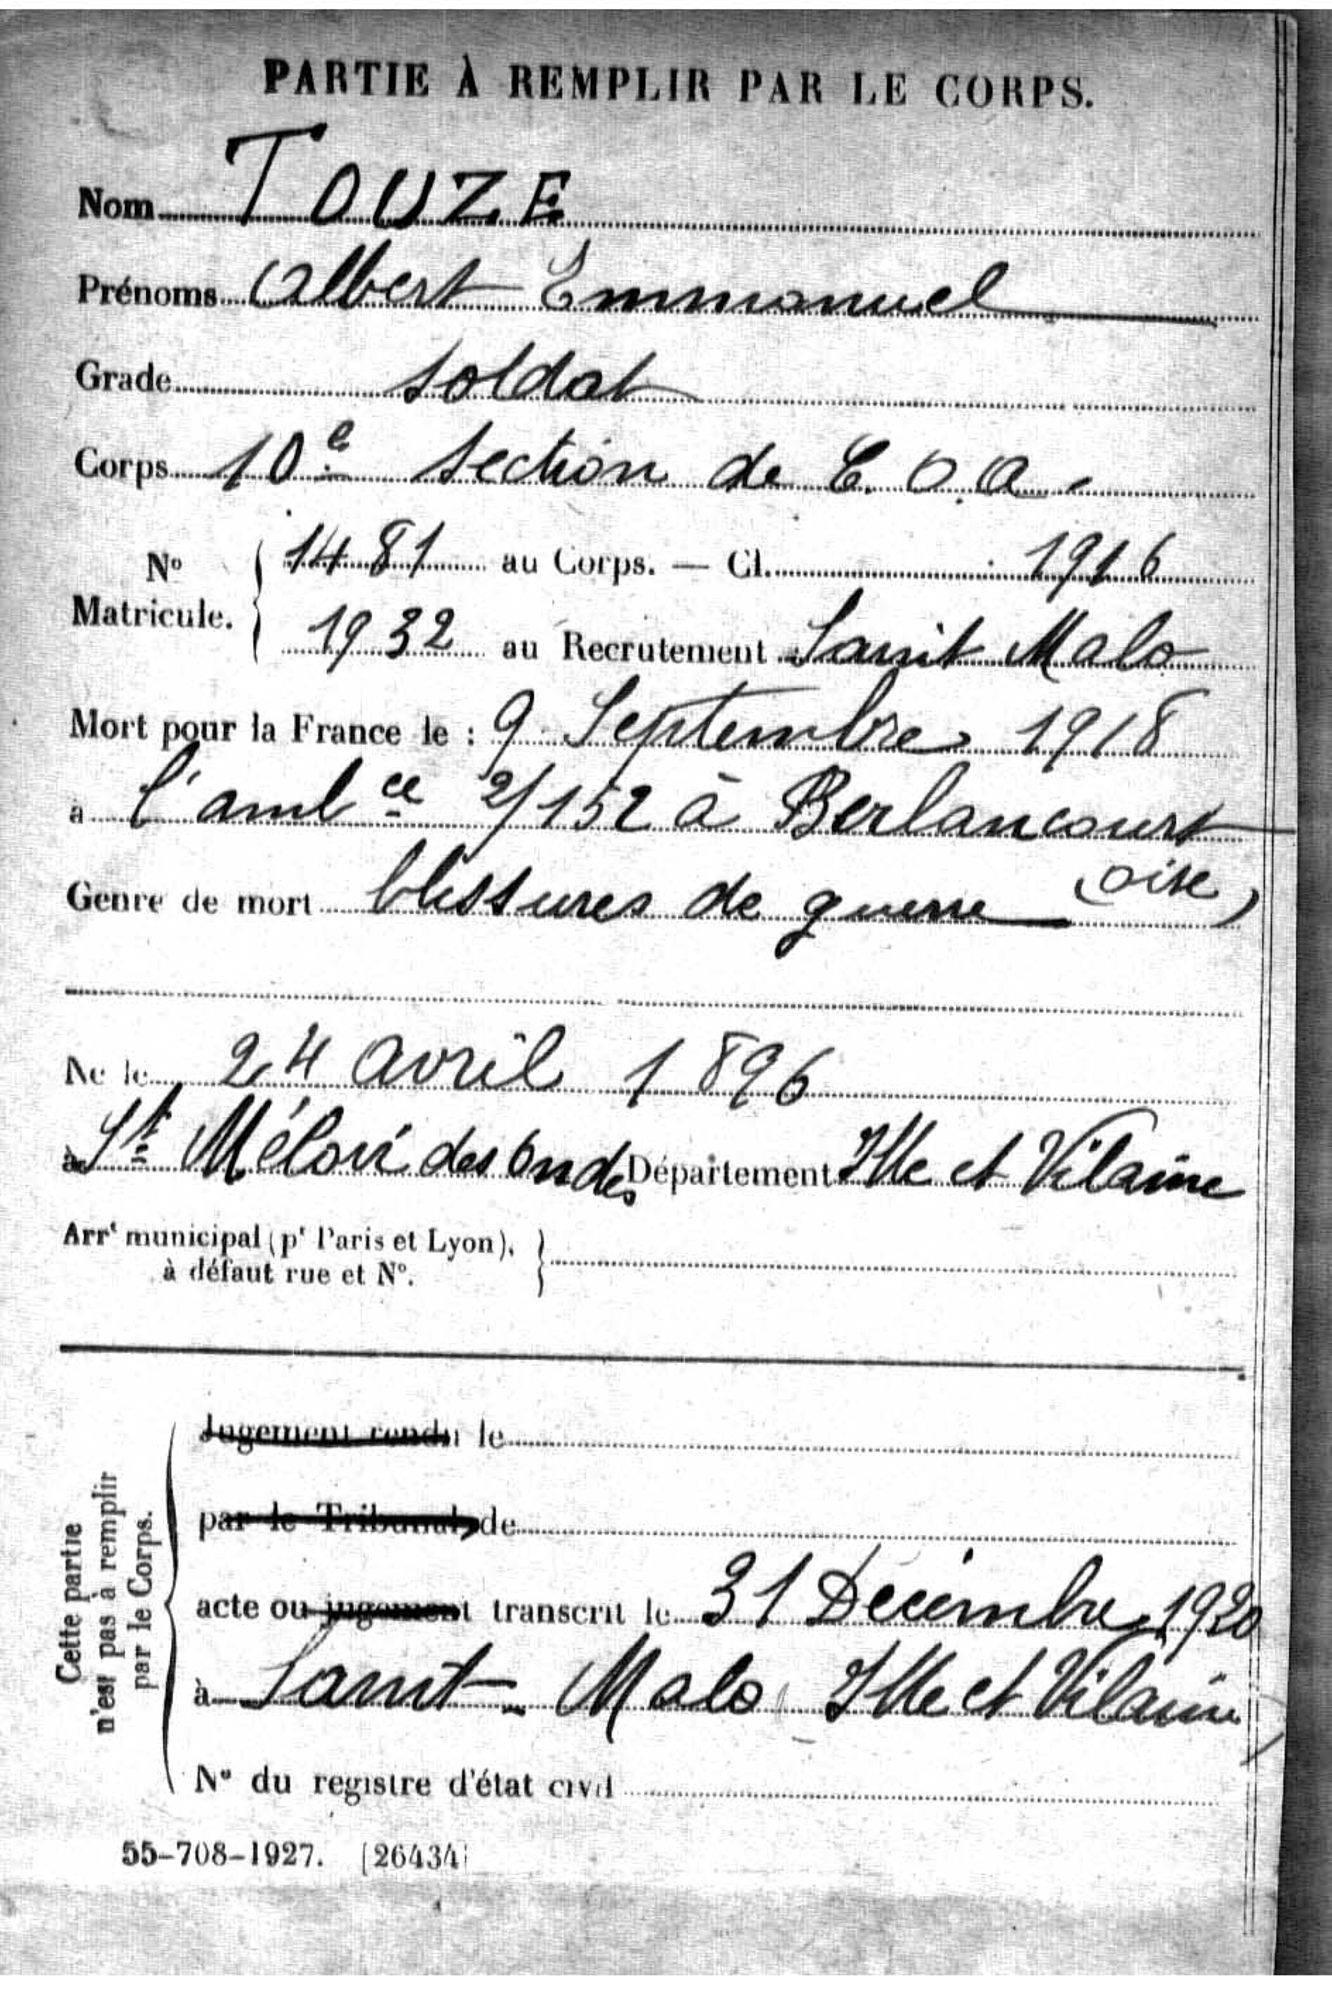 PARTIE À REMPLIR PAR LE CORPS.
Nom TOUZE
Prénoms Albert Emmanuel
Grade Soldat
Corps 10e Section de C. O. A.
No Matricule. 1481 au Corps. — Cl. 1916
1932 au Recrutement Saint Malo
Mort pour la France le : 9 Septembre 1918
à l'ambce 2/152 à Berlancourt
(Oise)
Genre de mort blessures de guerre
Né le 24 Avril 1896
à St Méloir des Ondes Département Ille et Vilaine
Arrt municipal (pr Paris et Lyon),
à défaut rue et No.
Cette partie
n'est pas à remplir
par le Corps.
Jugement rendu le
par le Tribunal de
acte ou jugement transcrit le 31 Décembre 1920
à Saint-Malo Ille et Vilaine
No du registre d'état civil
55-708-1927. [26434]